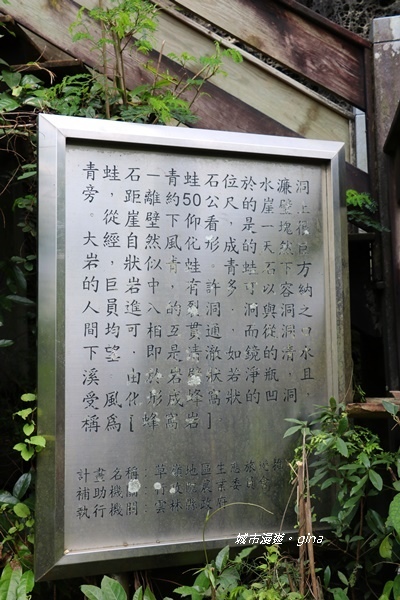 青蛙石—青蛙石位於水濂洞上
旁,距離約50公尺的崖壁
。從崖壁下仰看,是一塊很巨
大經自然風化形成的天然方
岩,岩狀似青蛙。青蛙石下
的巨岩中有許多可以容納
人員進入的裂洞,洞與洞之
間均可相互貫通,而從洞口
下望,即是清澈如鏡的
溪
受風化形成蜂窩狀的凹洞
稱為[蜂窩岩]
計畫名稱：草嶺地區生態旅
補助機關：行政院農
執行機關：雲林縣政府
城市漫遊。gina